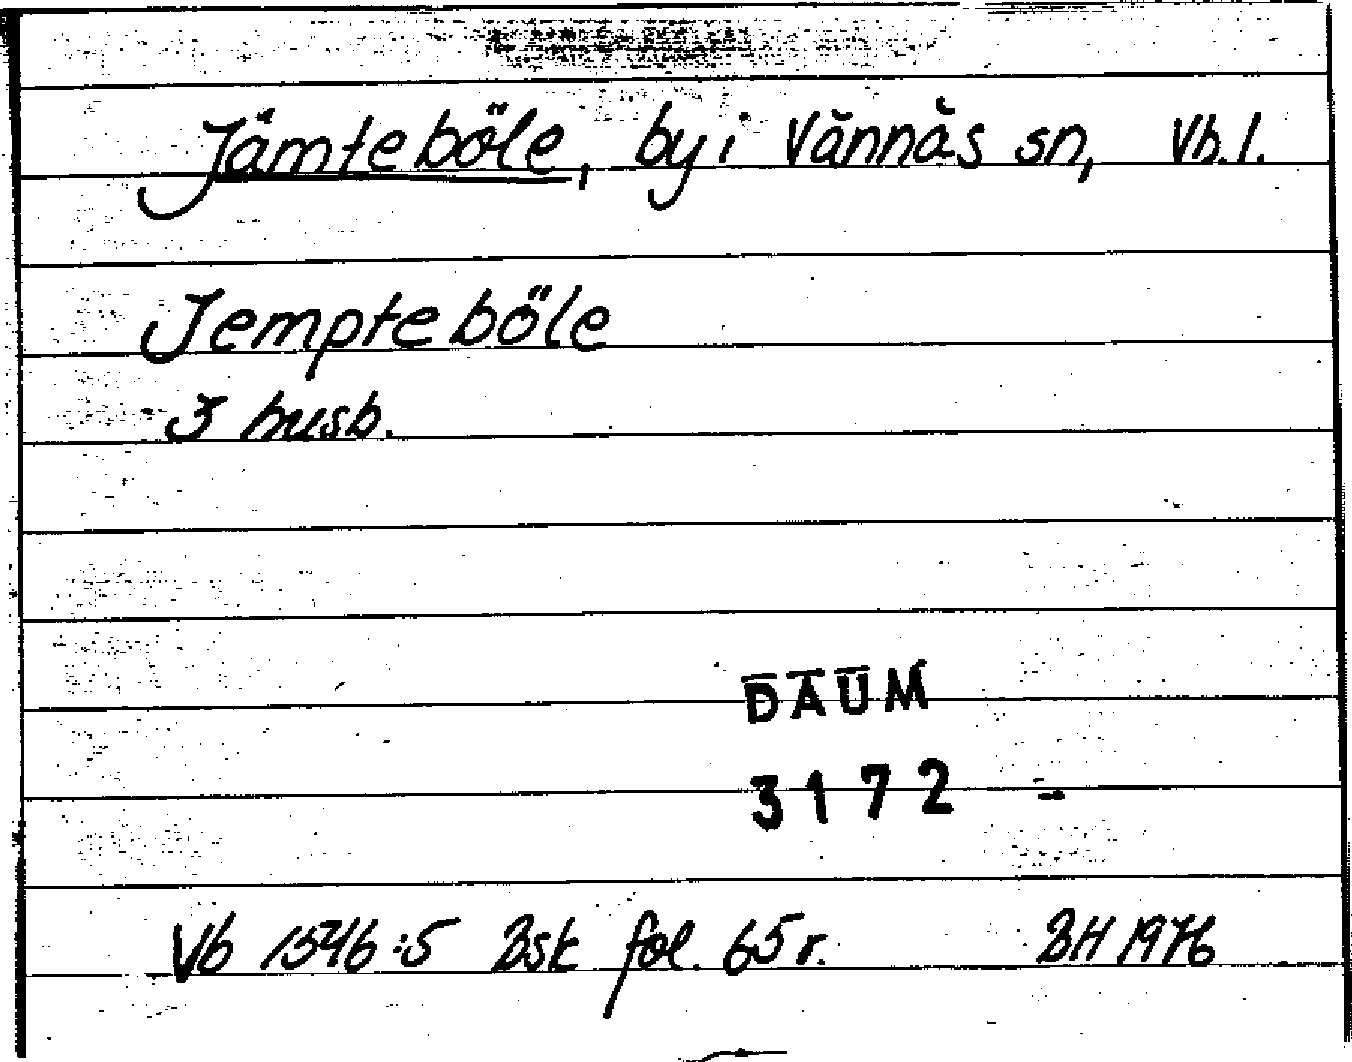 Jämteböle, by i Vännäs sn, Vb. l.
Jempteböle
3 husb.
DAUM
3172 -
Vb 1546:5 Bsk fol. 65 r. BH 1976